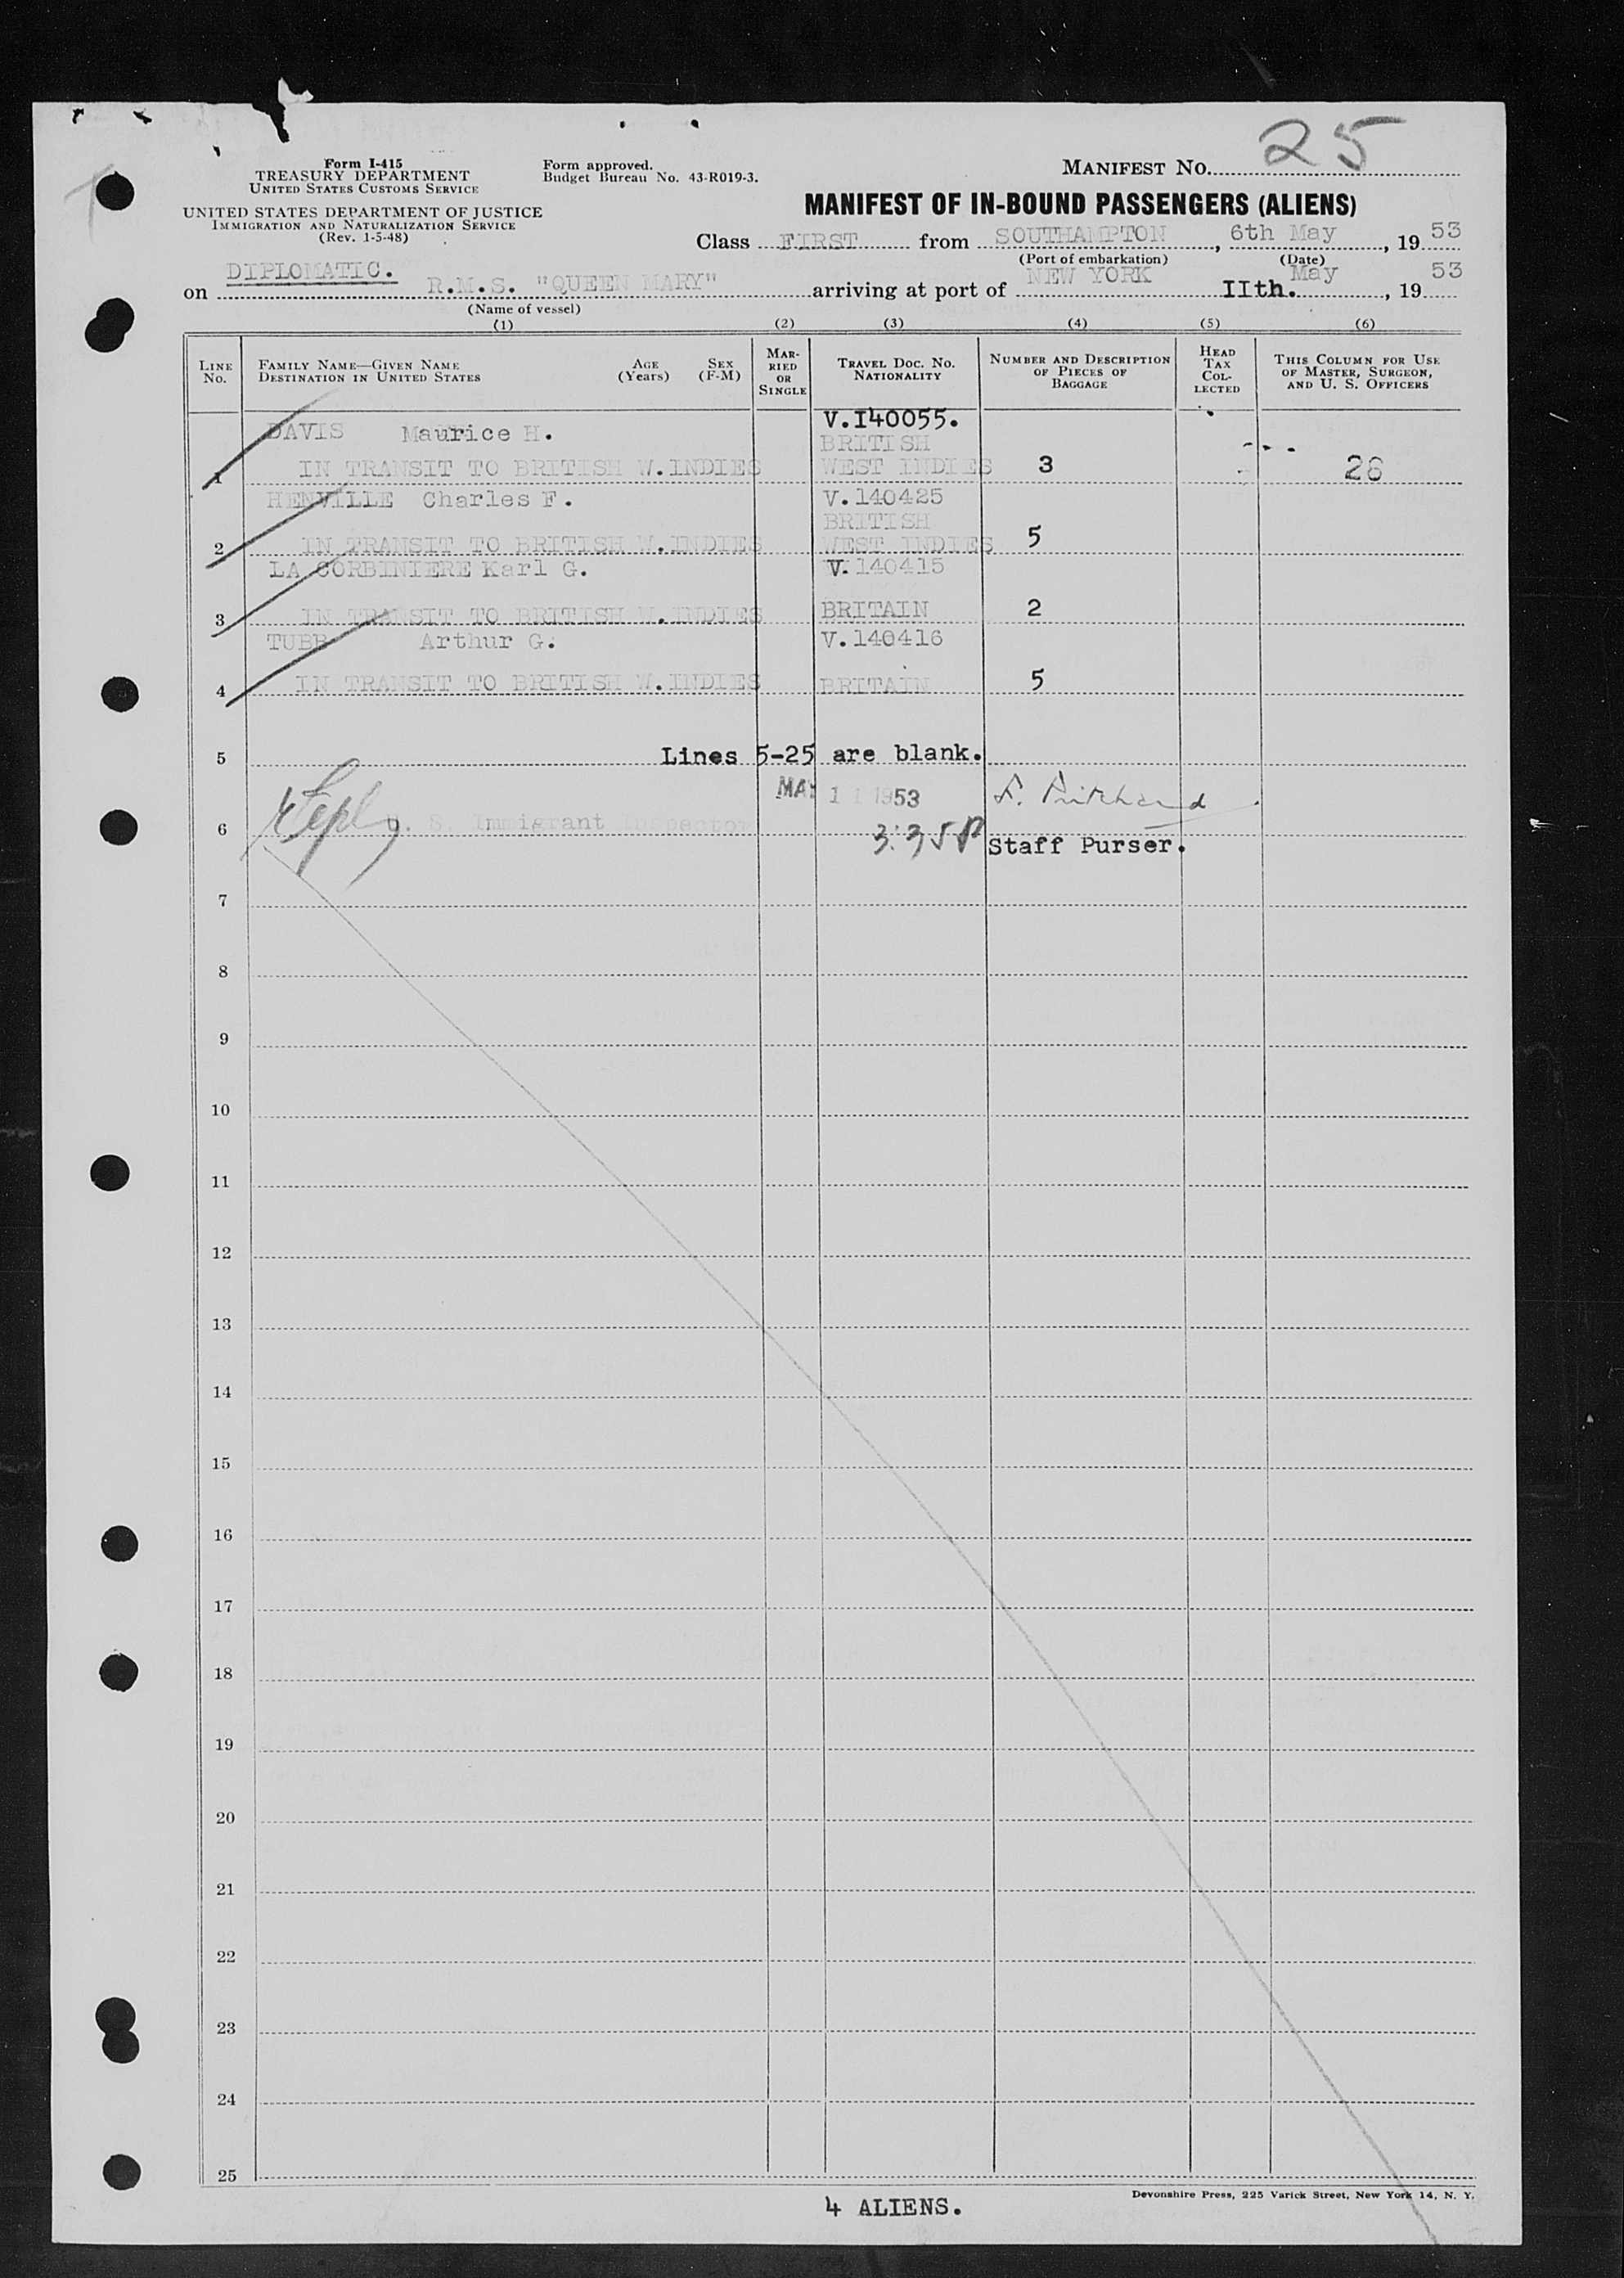 25
Form I-415
TREASURY DEPARTMENT
UNITED STATES CUSTOMS SERVICE
Form approved.
Budget Bureau No. 43-R019-3.
MANIFEST NO.
UNITED STATES DEPARTMENT OF JUSTICE
IMMIGRATION AND NATURALIZATION SERVICE
(Rev. 1-5-48)
MANIFEST OF IN-BOUND PASSENGERS (ALIENS)
Class FIRST from SOUTHAMPTON, 6th May, 19 53
(Port of embarkation) (Date)
DIPLOMATIC.
on R.M.S. "QUEEN MARY" arriving at port of NEW YORK IIth. May, 19 53
(Name of vessel)
(1) (2) (3) (4) (5) (6)
LINE NO. FAMILY NAME—GIVEN NAME DESTINATION IN UNITED STATES AGE (Years) SEX (F-M) MARRIED OR SINGLE TRAVEL DOC. NO. NATIONALITY NUMBER AND DESCRIPTION OF PIECES OF BAGGAGE HEAD TAX COLLECTED THIS COLUMN FOR USE OF MASTER, SURGEON, AND U. S. OFFICERS
DAVIS Maurice H. V.I40055.
BRITISH
1 IN TRANSIT TO BRITISH W.INDIES WEST INDIES 3 26
HENVILLE Charles F. V.140425
BRITISH
2 IN TRANSIT TO BRITISH W.INDIES WEST INDIES 5
LA CORBINIERE Karl G. V.140415
3 IN TRANSIT TO BRITISH W.INDIES BRITAIN 2
TUBB Arthur G. V.140416
4 IN TRANSIT TO BRITISH W.INDIES BRITAIN 5
5 Lines 5-25 are blank.
MAY 11 1953
6 U. S. Immigrant Inspector 3:35P Staff Purser.
7
8
9
10
11
12
13
14
15
16
17
18
19
20
21
22
23
24
25
4 ALIENS.
Devonshire Press, 225 Varick Street, New York 14, N. Y.